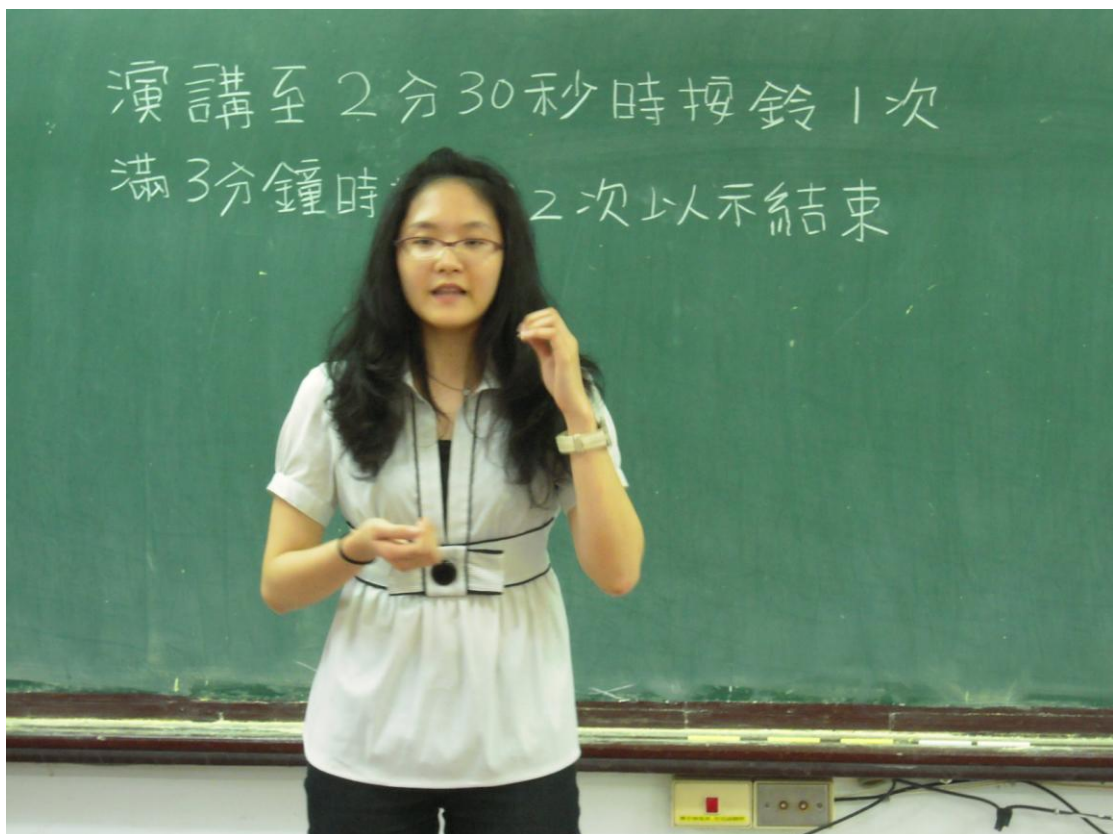 演講至2分30秒時按鈴1次
滿3分鐘時2次以示結束